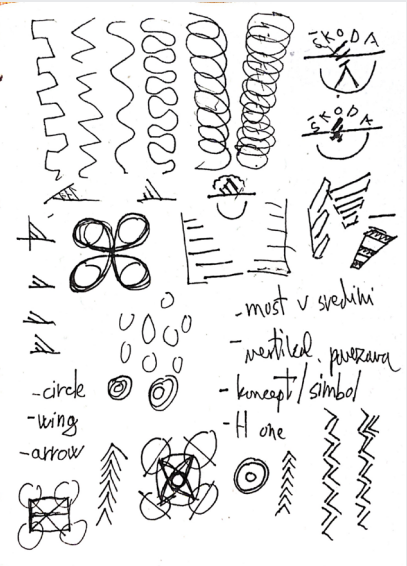 ŠKODA
ŠKODA
-most v sredini
-vertikal. povezava
-koncept/simbol
-H one
-circle
-wing
-arrow